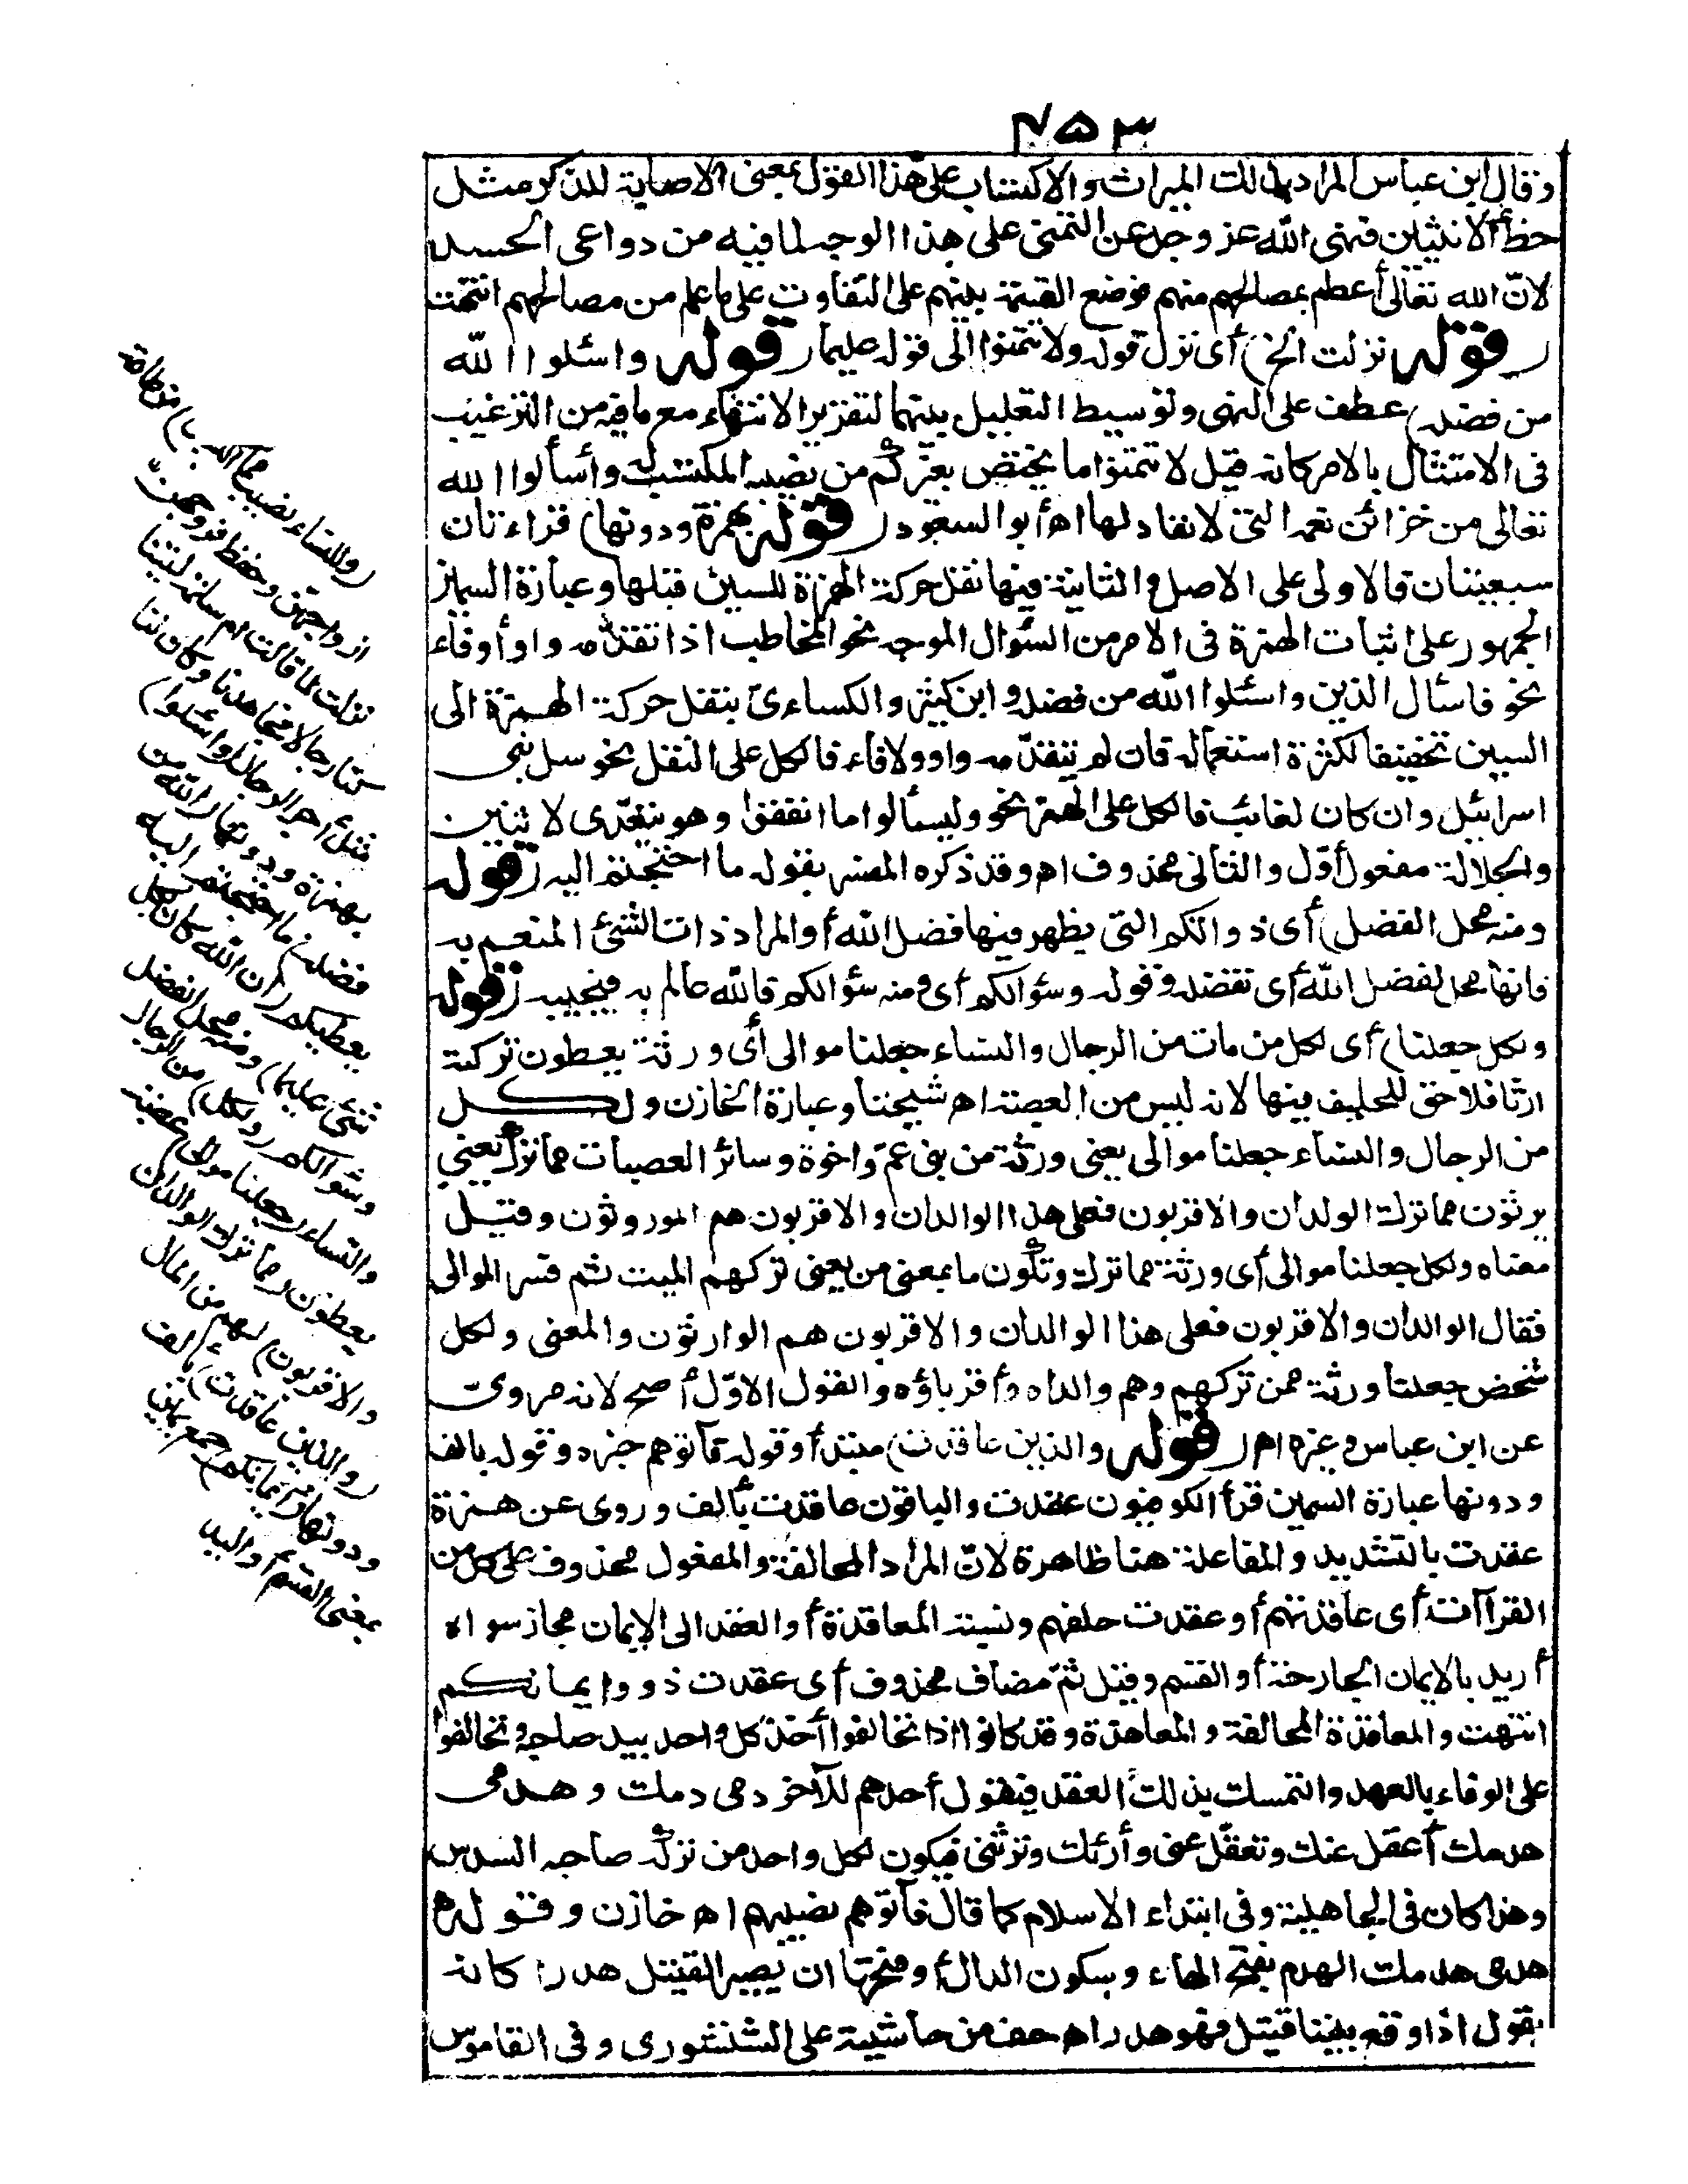 ٤٥٣
وقال ابن عباس المراد بذلك الميراث والاكتساب على هذا القول بمعنى الاصابة للذكر مثل
حظ الانثيين فنهى الله عز وجل عن التمنى على هذا الوجه لما فيه من دواعى الحسد
لانّ الله تعالى أعلم بمصالحهم منهم فوضع القسمة بينهم على التفاوت على ما علم من مصالحهم انتهت
(قوله نزلت الخ) أى نزل قوله ولا تتمنوا الى قوله عليما (قوله واسئلوا الله
من فضله) عطف على النهى وتوسيط التعليل بينهما لتقرير الانتهاء مع ما فيه من الترغيب
فى الامتثال بالامر كانه قيل لا تتمنوا ما يختص بغيركم من نصيبه المكتسب له وأسألوا الله
تعالى من خزائن نعمه التى لا نفاد لها اه أبو السعود (قوله بهمزة ودونها) قراءتان
سبعيتان فالاولى على الاصل والثانية فيها نقل حركة الهمزة للسين قبلها وعبارة السمين
الجمهور على اثبات الهمزة فى الامر من السؤال الموجه نحو المخاطب اذا تقدّمه واو أو فاء
نحو فاسأل الذين واسئلوا الله من فضله وابن كثير والكساءى بنقل حركة الهمزة الى
السين تخفيفا لكثرة استعماله فان لم يتقدّمه واو ولا فاء فالكل على النقل نحو سل بنى
اسرائيل وان كان لغائب فالكل على الهمز نحو وليسألوا ما انفقوا وهو يتعدّى لاثنين
والجلالة مفعول أوّل والثانى محذوف اه وقد ذكره المفسر بقوله ما احتجتم اليه (قوله
ومنه محل الفضل) أى ذواتكم التى يظهر فيها فضل الله أو المراد ذات الشئ المنعم به
فانها محل لفضل الله أى تفضله وقوله وسؤالكم أى ومنه سؤالكم فالله عالم به فيجيبه (قوله
ولكل جعلنا) أى لكل من مات من الرجال والنساء جعلنا موالى أى ورثة يعطون تركته
ارثا فلا حق للحليف فيها لانه ليس من العصبة اه شيخنا وعبارة الخازن ولكل
من الرجال والنساء جعلنا موالى يعنى ورثة من بنى عمّ واخوة وسائر العصبات مما ترك يعنى
يرثون مما ترك الولدان والاقربون فعلى هذا الوالدان والاقربون هم الموروثون وقيل
معناه ولكل جعلنا موالى أى ورثة مما ترك وتكون ما بمعنى من يعنى تركهم الميت ثم فسر الموالى
فقال الوالدان والاقربون فعلى هذا الوالدان والاقربون هم الوارثون والمعنى ولكل
شخص جعلنا ورثة ممن تركهم وهم والداه وأقرباؤه والقول الاوّل أصح لانه مروى
عن ابن عباس وغيره اه (قوله والذين عاقدت) مبتدأ وقوله فآتوهم خبره وقوله بالف
ودونها عبارة السمين قرأ الكوفيون عقدت والباقون عاقدت بألف وروى عن حمزة
عقدت بالتشديد والمفاعلة هنا ظاهرة لانّ المراد المحالفة والمفعول محذوف على كل من
القراآت أى عاقدتهم أو عقدت حلفهم ونسبة المعاقدة أو العقد الى الايمان مجاز سواء
أريد بالايمان الجارحة أو القسم وقيل ثمّ مضاف محذوف أى عقدت ذووا يمانكم
انتهت والمعاقدة المحالفة والمعاهدة وقد كانوا اذا تحالفوا أخذ كل واحد بيد صاحبه وتحالفوا
على الوفاء بالعهد والتمسك بذلك العقد فيقول أحدهم للآخر دمى دمك وهدمى
هدمك أعقل عنك وتعقل عنى وأرثك وترثنى فيكون لكل واحد من تركة صاحبه السدس
وهذا كان فى الجاهلية وفى ابتداء الاسلام كما قال فآتوهم نصيبهم اه خازن وقوله
هدمى هدمك الهدم بفتح الهاء وسكون الدال أو فتحها ان يصير القتيل هدرا كانه
يقول اذا وقع بيننا قتيل فهو هدر اه حف من حاشية على الشنشورى وفى القاموس
(وللنساء نصيب مما اكتسبن) من طاعة
ازواجهن وحفظ فروجهنّ
نزلت لما قالت ام سلمة ليتنا
كنا رجالا فجاهدنا وكان لنا
مثل أجر الرجال (واسئلوا)
بهمزة ودونها (الله من
فضله) ما احتجتم اليه
يعطيكم (ان الله كان بكل
شئ عليما) ومنه محل الفضل
وسؤالكم (ولكل) من الرجال
والنساء (جعلنا موالى) عصبة
يعطون (مما ترك الوالدان
والاقربون) لهم من المال
(والذين عاقدت) بألف
ودونها (أيمانكم) جمع يمين
بمعنى القسم أو اليد